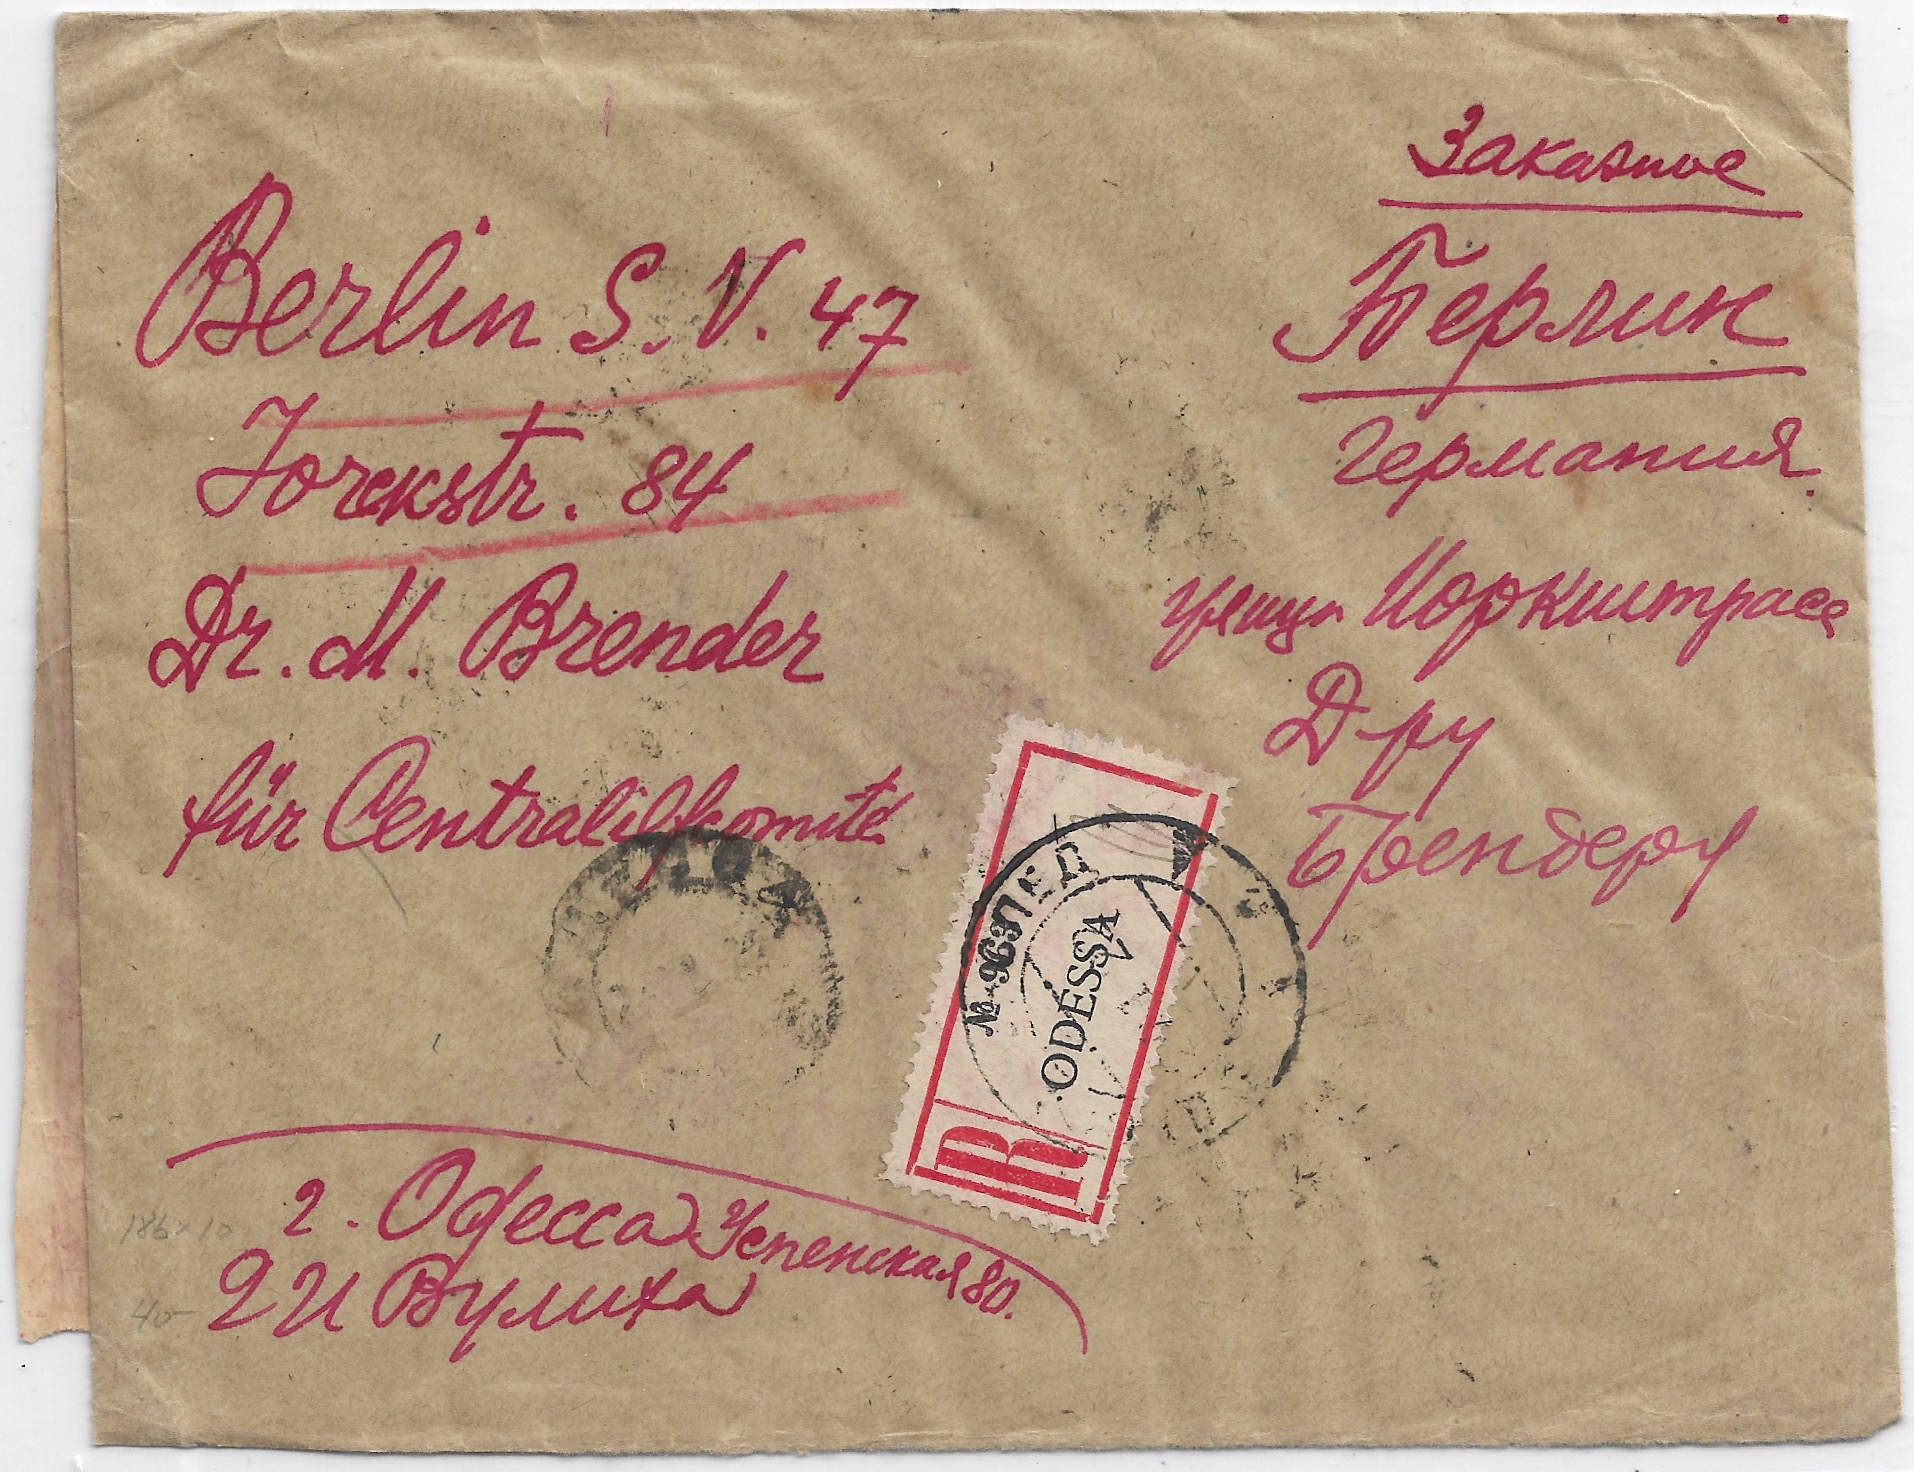 Заказное
Berlin S. V. 47
Берлин
Германия.
Jorckstr. 84
улица Иоркштрасе
Dr. M. Brender
Д-ру
Брендеру
für Centralilfkomité
№ 963
ODESSA
R
г. Одесса Успенская 80.
Вулиха
186 x 10
40-